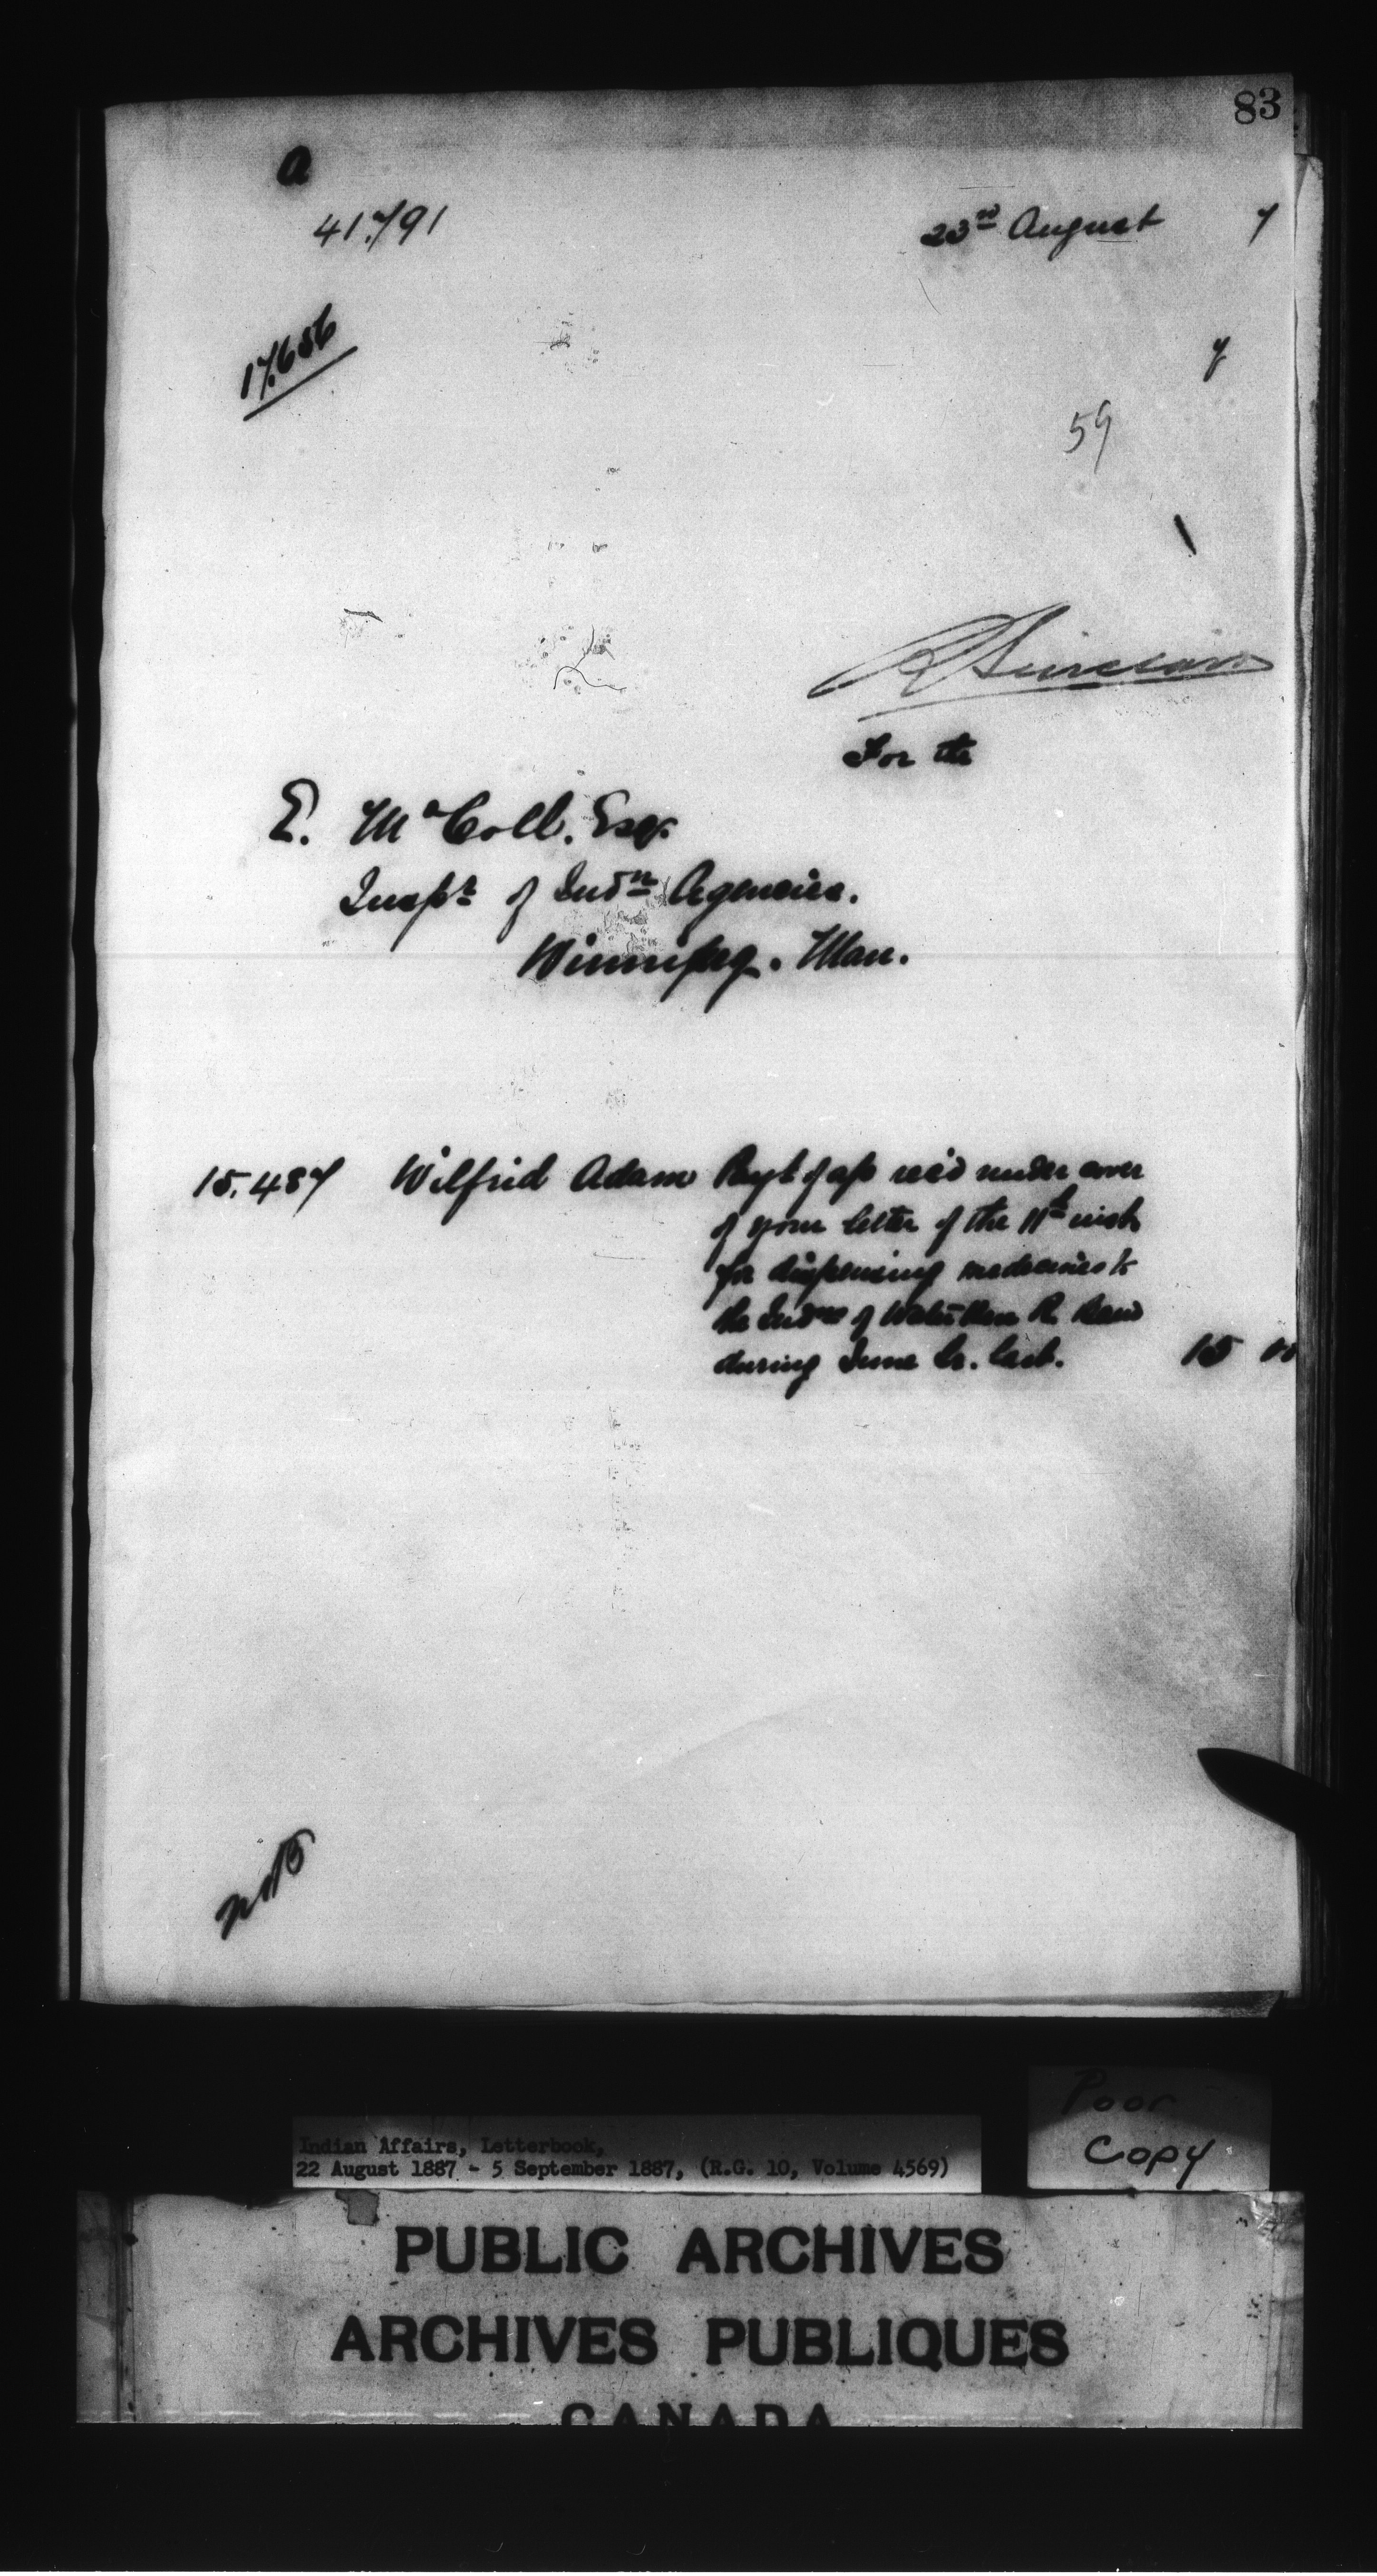 83
a
41.791
23rd August 7
17.656
7
59
R Sinclair
For the
E. McColl. Esqr
Inspr of Indn Agencies.
Winnipeg. Man.
15.487 Wilfrid Adam Payt of a/c rec'd under cover
of your letter of the 11th inst
for dispensing medicines to
the Indns of Water Hen R. Band
during June Qr. last. 15 00
Poor
Copy
Indian Affairs, Letterbook,
22 August 1887 - 5 September 1887, (R.G. 10, Volume 4569)
PUBLIC ARCHIVES
ARCHIVES PUBLIQUES
CANADA